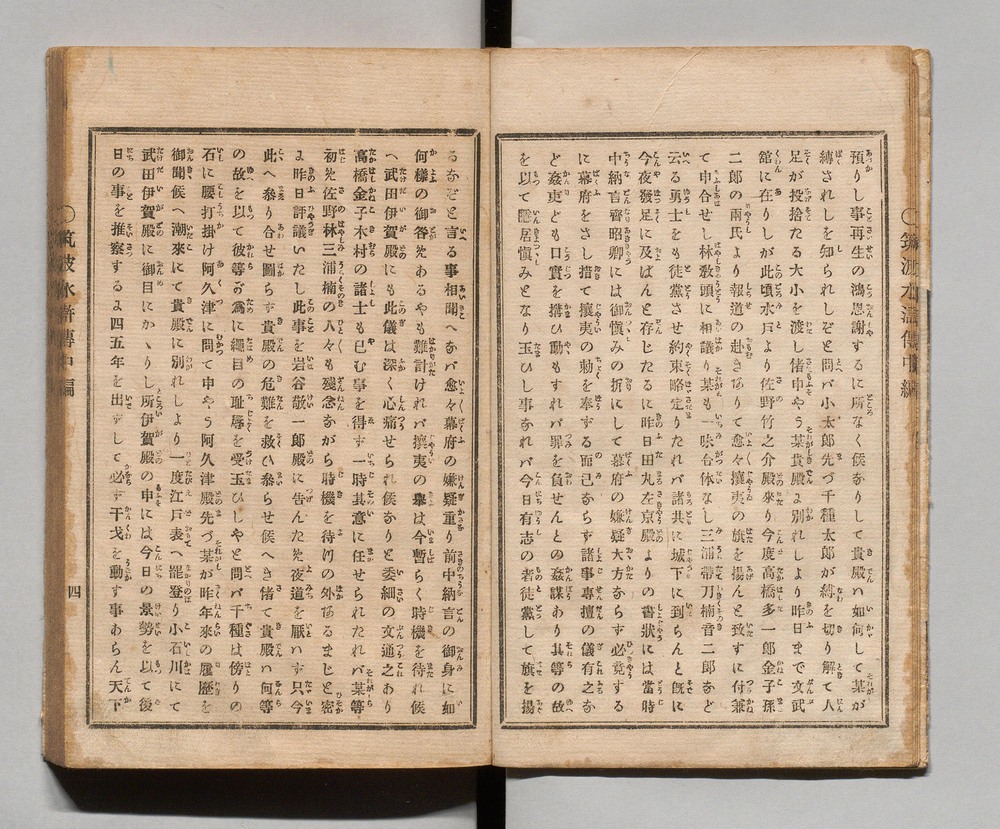 預りし事再生の鴻恩謝するに所なく侯なりして貴殿ハ如何して某が
縛されしを知られしぞと問バ小太郎先づ千種太郎が縛を切り解て人
足が投捨たる大小を渡し偖申やう某貴殿よ別れしより昨日まで文武
舘に在りしが此頃水戸より佐野竹之介殿來り今度高橋多一郎金子孫
二郎の兩氏より報道の赴きありて愈々攘夷の旗を揚んと致すに付兼
て申合せし林敎頭に相議り某も一味合体なし三浦帶刀楠音二郎など
云る勇士をも徒黨させ約束略定りたれバ諸共に城下に到らんと旣に
今夜發足に及ばんと存じたるに昨日田丸左京殿よりの書狀には當時
中納言齊昭卿には御愼みの折にして幕府の嫌疑大方ならず必竟する
に幕府をさし措て攘夷の勅を奉ずる而已ならず諸事專擅の儀有之な
ど姦吏ども口實を搆ひ動もすれバ罪を負せんとの姦謀あり其等の故
を以て隱居愼みとなり玉ひし事なれバ今日有志の者徒黨して旗を揚
るなぞと言る事相聞へなバ愈々幕府の嫌疑重り前中納言の御身に如
何樣の御咎めあるやも難計ければ攘夷の擧は今暫らく時機を待れ候
へ武田伊賀殿にも此儀は深く心痛せられ候なりと委細の文通之あり
高橋金子木村の諸士も已む事を得ず一時其意に任せられたれバ某等
初め佐野林三浦楠の人々も殘念ながら時機を待けの外あるまじと密
よ昨日評議いたし此事を岩谷敬一郎殿に告んため夜道を厭ハず只今
此へ參り合せ圖らず貴殿の危難を救ひ參らせ候へき偖て貴殿ハ何等
の故を以て彼等の爲に繩目の耻辱を受玉ひしやと問バ千種は傍りの
石に腰打掛け阿久津に問て申やう阿久津殿先づ某が昨年來の履歷を
御聞候へ潮來にて貴殿に別れしより一度江戸表へ罷登り小石川にて
武田伊賀殿に御目にかゝりし所伊賀殿の申には今日の景勢を以て後
日の事を推察するよ四五年を出ずして必ず干戈を動す事あらん天下
〇筑波水滸傳中編
四